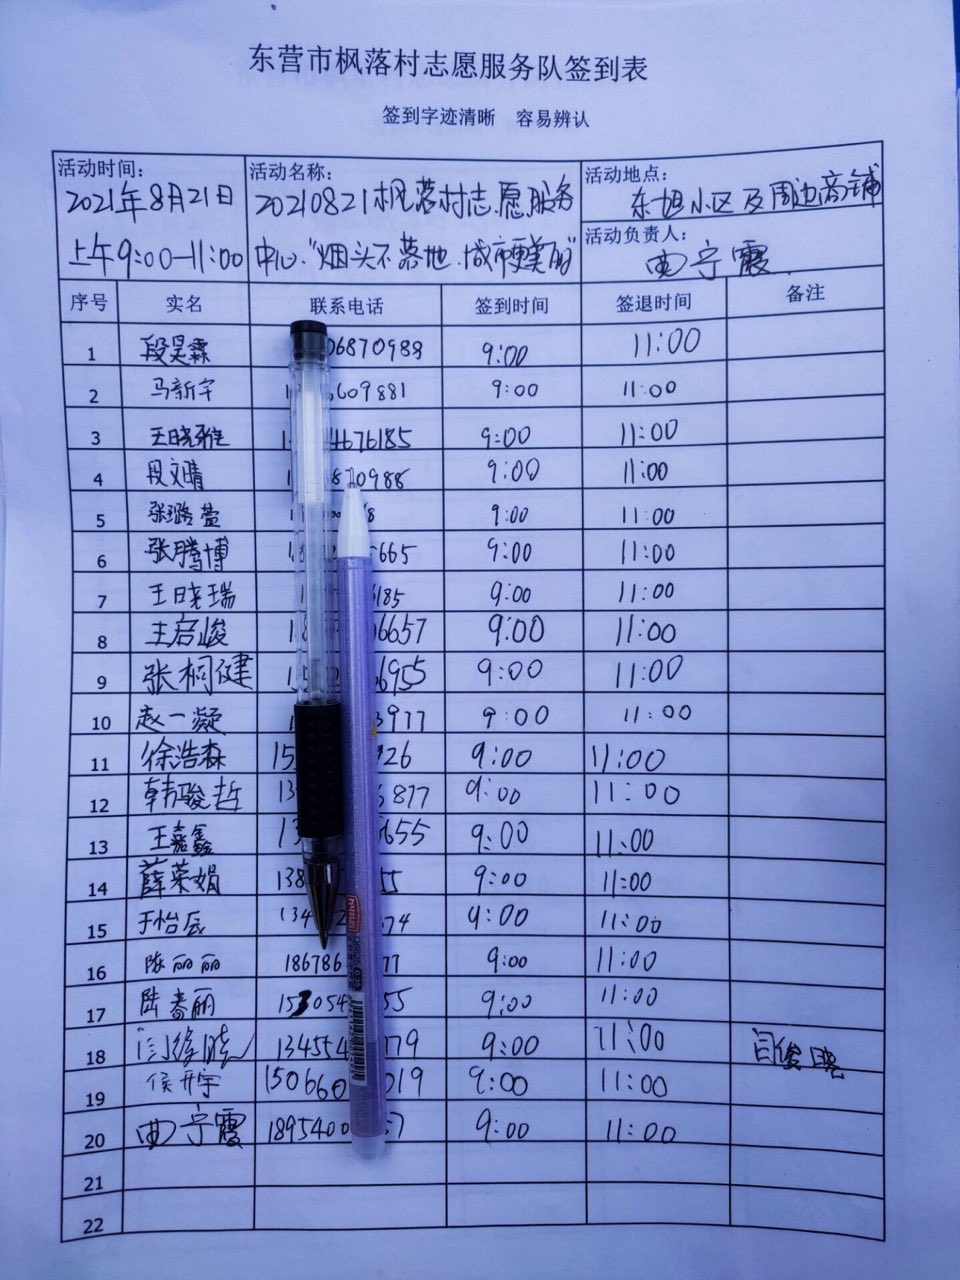 东营市枫落村志愿服务队签到表
签到字迹清晰 容易辨认
活动时间: 2021年8月21日 上午9:00-11:00
活动名称: 20210821枫落村志愿服务中心"烟头不落地.城市更美丽"
活动地点: 东旭小区及周边商铺
活动负责人: 曲宁霞
序号 实名 联系电话 签到时间 签退时间 备注
1 段昊霖 06870988 9:00 11:00
2 马新宇 609881 9:00 11:00
3 王晓雅 4676185 9:00 11:00
4 段文晴 870988 9:00 11:00
5 张璐萱 9:00 11:00
6 张腾博 5665 9:00 11:00
7 王晓瑞 6185 9:00 11:00
8 王启峻 6657 9:00 11:00
9 张桐健 6955 9:00 11:00
10 赵一凝 3977 9:00 11:00
11 徐浩森 15 26 9:00 11:00
12 韩骏哲 13 6877 9:00 11:00
13 王嘉鑫 13 655 9:00 11:00
14 薛荣娟 138 55 9:00 11:00
15 于怡辰 134 74 9:00 11:00
16 陈丽丽 186786 77 9:00 11:00
17 陆春丽 153054 55 9:00 11:00
18 闫俊晓 134554 79 9:00 11:00 闫俊晓
19 侯开宇 150660 019 9:00 11:00
20 曲宁霞 1895400 57 9:00 11:00
21
22